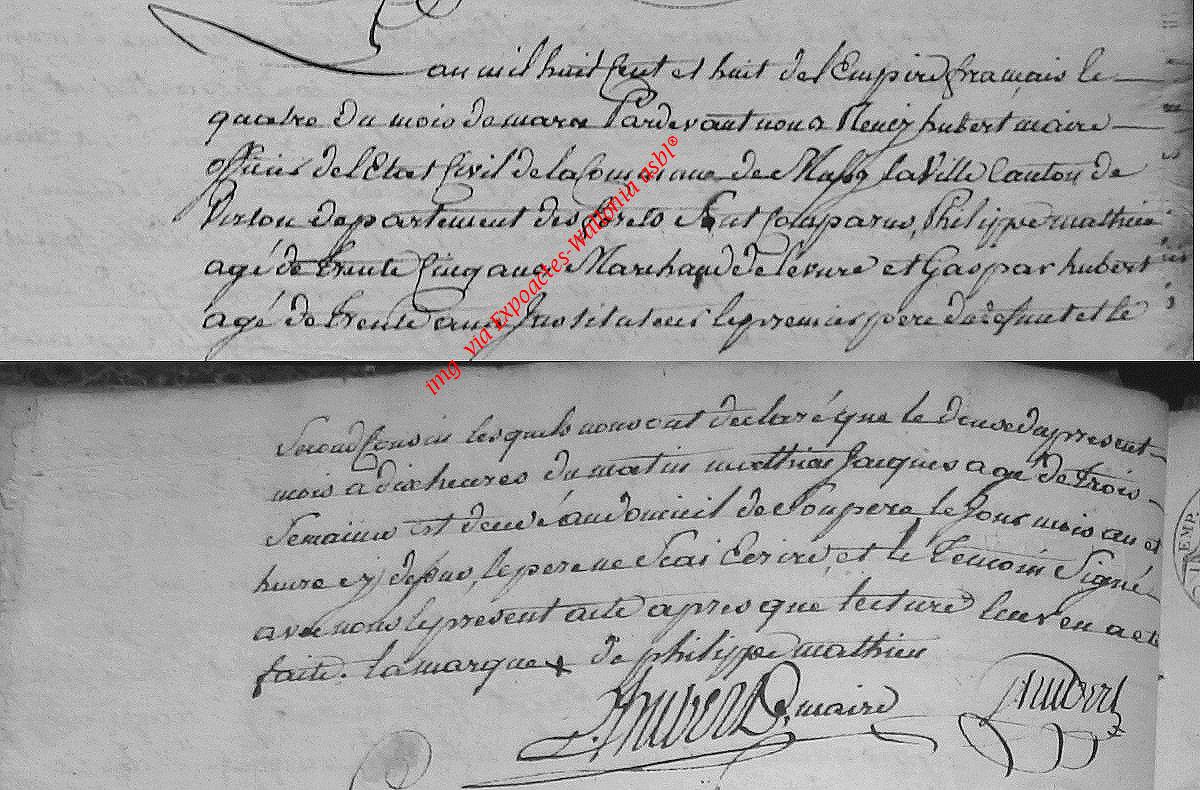 L'an mil huit Cent et huit de l'Empire français le
quatre du mois de mars Pardevant nous hubert maire
officier de l'Etat Civil de la Commune de Mussy la Ville Canton de
Virton departement des forets Sont Comparus, Philippe mathieu
agé de trente Cinq ans Marchand de levure et Gaspar hubert
agé de trente ans Instituteur le premier pere du defunt et le
Second Cousin lesquels nous ont declaré que le deux du present
mois a dix heures du matin mathieu Jacques agé de trois
Semaines est decedé au domicil de Son pere le Jour mois an et
heure cy dessus, le pere ne Scai Ecrire, et le temoin Signé
avec nous le present acte apres que lecture leur en a eté
faite. la marque x de philippe mathieu
Hubert maire Hubert
img via Expoactes-Wallonia asbl®
EMP